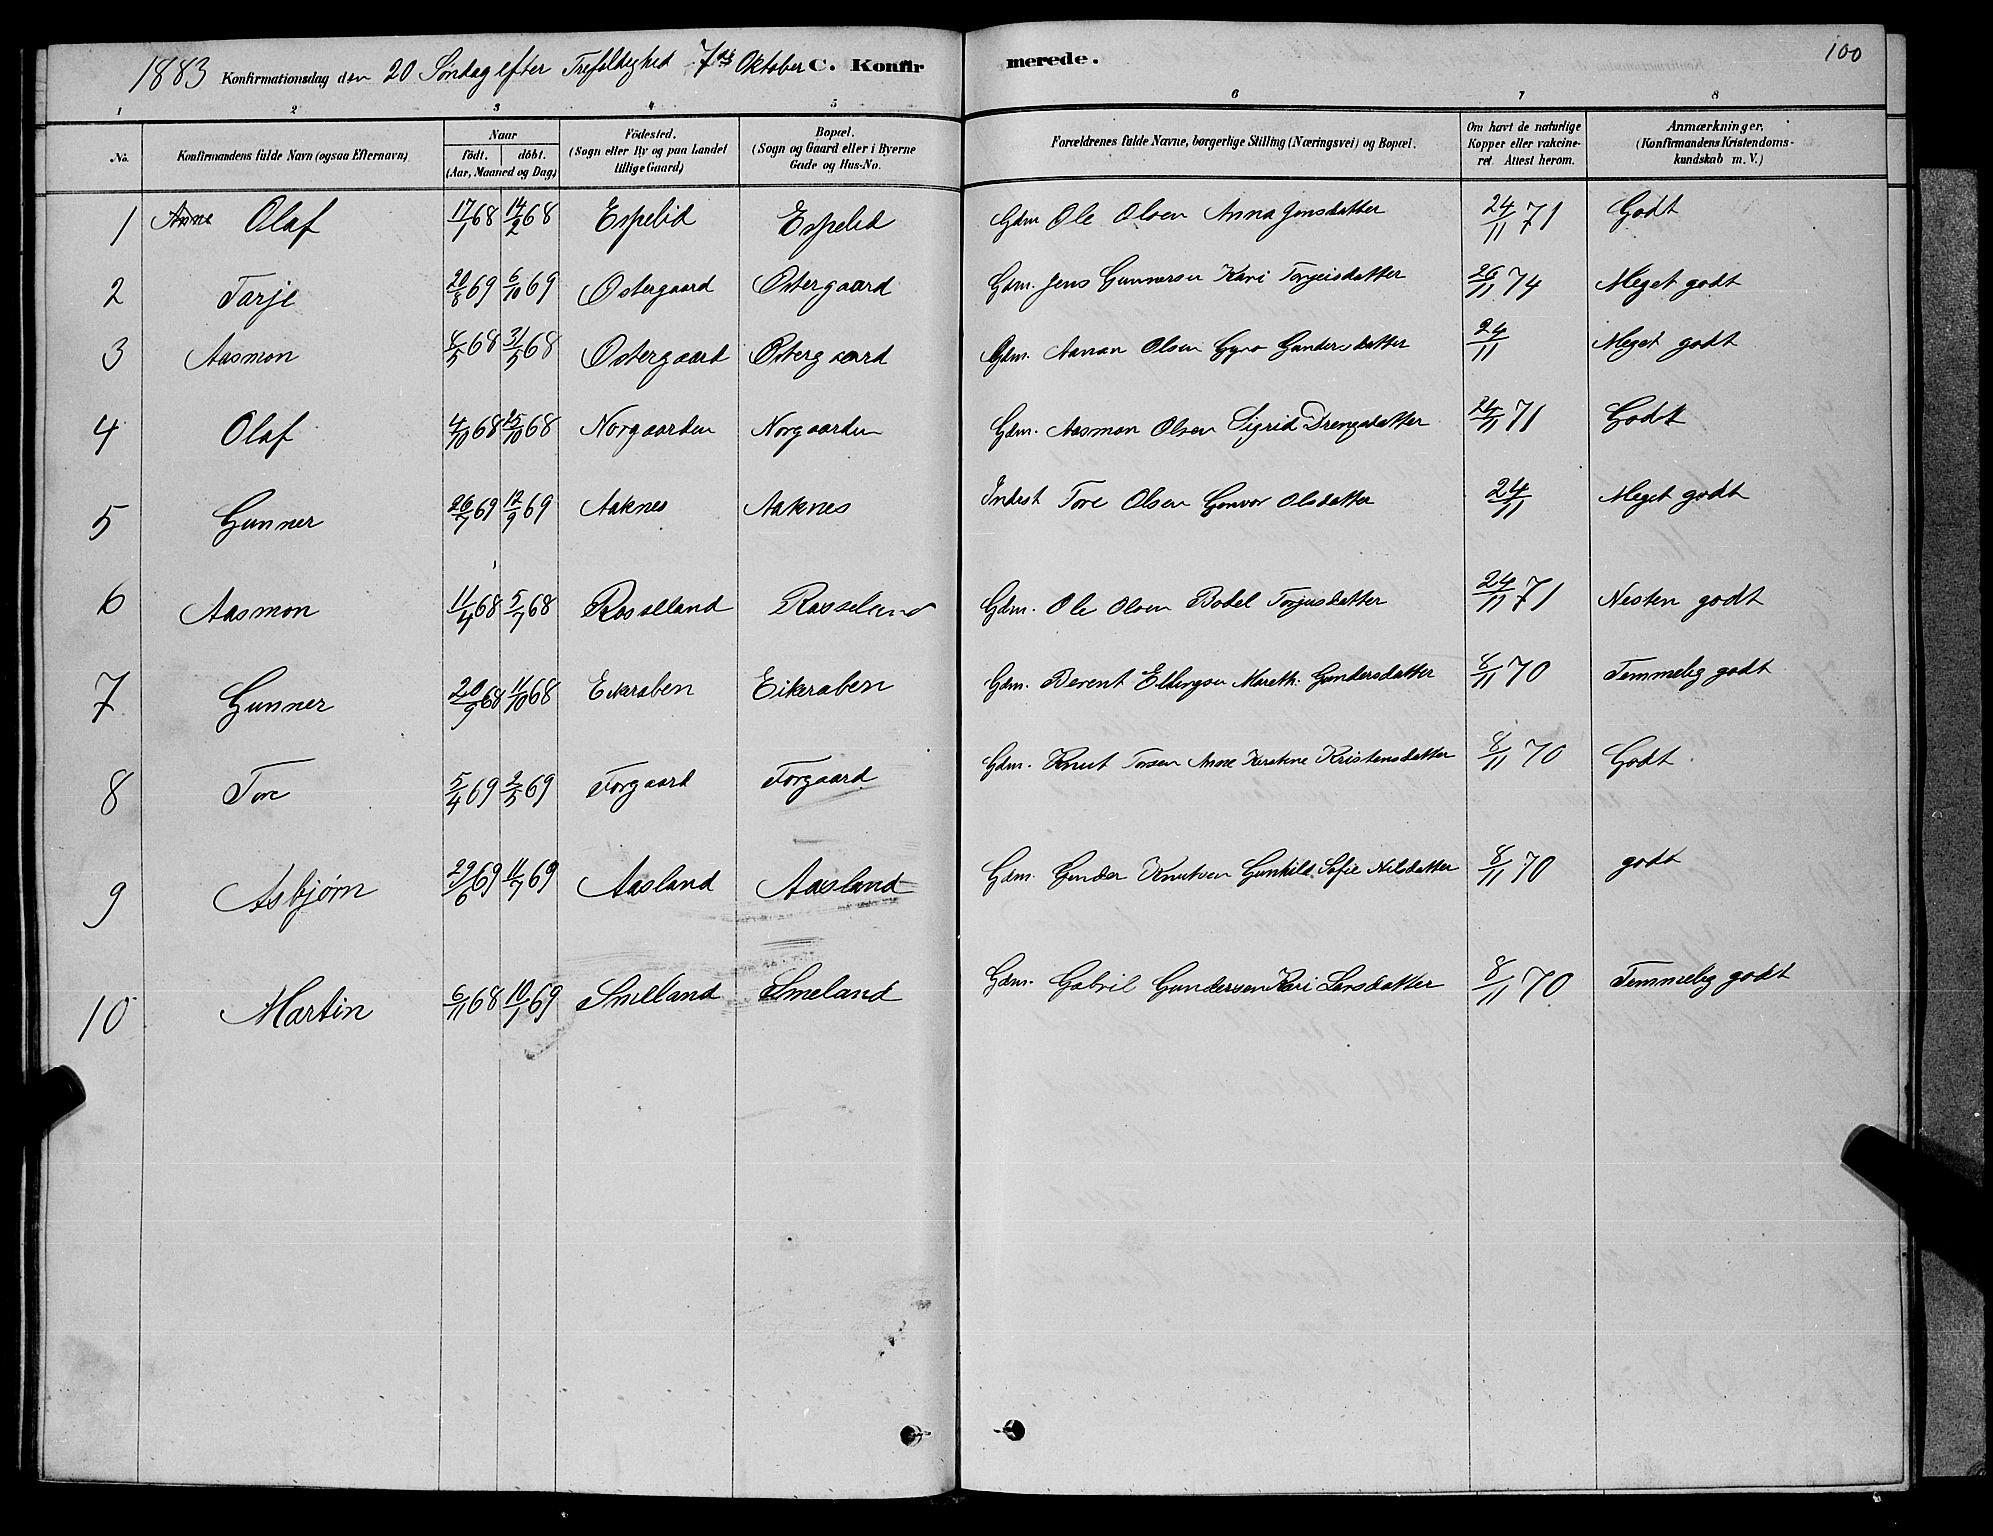 1883 Konfirmationsdag den 20 Søndag efter Trefoldighed 7de Oktober C. Konfirmerede. 100
1 2 3 4 5 6 7 8
No. Konfirmandens fulde Navn (ogsaa Efternavn) Naar födt. döbt. (Aar, Maaned og Dag) Födested. (Sogn eller By og paa Landet tillige Gaard) Bopæl. (Sogn og Gaard eller i Byerne Gade og Hus-No. Forældrenes fulde Navne, borgerlige Stilling (Næringsvei) og Bopæl. Om havt de naturlige Kopper eller vakcineret. Attest herom. Anmærkninger. (Konfirmandens Kristendomskundskab m. V.)
1 Olaf 17/1 68 14/2 68 Espelid Espelid Gdm. Ole Olsen Anna Jensdatter 24/11 71 Godt
2 Tarje 20/8 69 6/10 69 Ostergaard Ostergaard Gdm. Jens Gunnersen Kari Torgeisdatter 26/11 74 Meget godt
3 Aasmon 8/5 68 31/5 68 Ostergaard Ostergaard Gdm. Aanon Olsen Gyro Gundersdatter 24/11 Meget godt
4 Olaf 4/10 68 25/10 68 Norgaarden Norgaarden Gdm. Aasmon Olsen Sigrid Drengsdatter 24/11 71 Godt
5 Gunner 26/7 69 12/9 69 Aaknes Aaknes Inderst Tore Olsen Gunvor Olsdatter 24/11 Meget godt
6 Aasmon 11/4 68 5/7 68 Rosseland Rosseland Gdm. Ole Olsen Bodel Torjusdatter 24/11 71 Nesten godt
7 Gunner 20/9 68 11/10 68 Eikraben Eikraben Gdm. Berent Ellingsen Mareth. Gundersdatter 8/11 70 Temmelig godt
8 Tore 5/4 69 2/5 69 Forgaard Forgaard Gdm. Knut Torsen Anne Kirstine Kristensdatter 8/11 70 Godt
9 Asbjørn 29/6 69 11/7 69 Aasland Aasland Gdm. Gunder Knutsen Gunhild Sofie Nilsdatter 8/11 70 godt
10 Martin 6/11 68 10/1 69 Smeland Smeland Gdm. Gabril Gundersen Kari Larsdatter 8/11 70 Temmelig godt